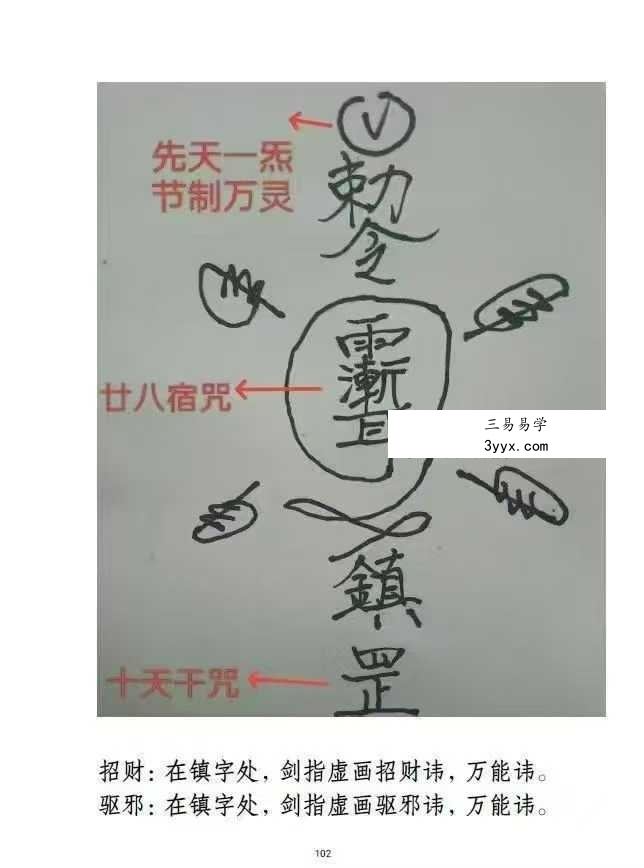 先天一炁
节制万灵
勅令
廿八宿咒
三易易学
3yyx.com
鎮
十天干咒
罡
招财：在镇字处，剑指虚画招财讳，万能讳。
驱邪：在镇字处，剑指虚画驱邪讳，万能讳。
102